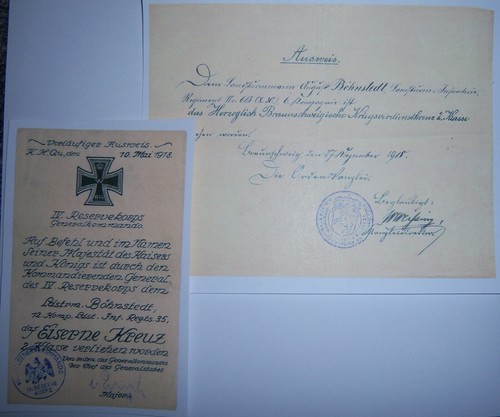 Ausweis.
Dem Landsturmmann August Böhnstedt, Landsturm-Infanterie
Regiment No. 6 Kompagnie ist
das Herzoglich Braunschweigische Kriegsverdienstkreuz 2. Klasse
worden.
Braunschweig, den 17. 1918.
Die Ordenskanzlei
Beglaubigt:
Vorläufiger Ausweis.
K.H.Qu., den 10. Mai 1918.
IV. Reservekorps
Generalkommando.
Auf Befehl und im Namen
Seiner Majestät des Kaisers
und Königs ist durch den
Kommandierenden General
des IV Reservekorps dem
Ldstrm. Böhnstedt,
12. Komp. Ldst. Inf. Regts. 35,
das Eiserne Kreuz
2. Klasse verliehen worden
Von seiten des Generalkommandos
Der Chef des Generalstabes
Major